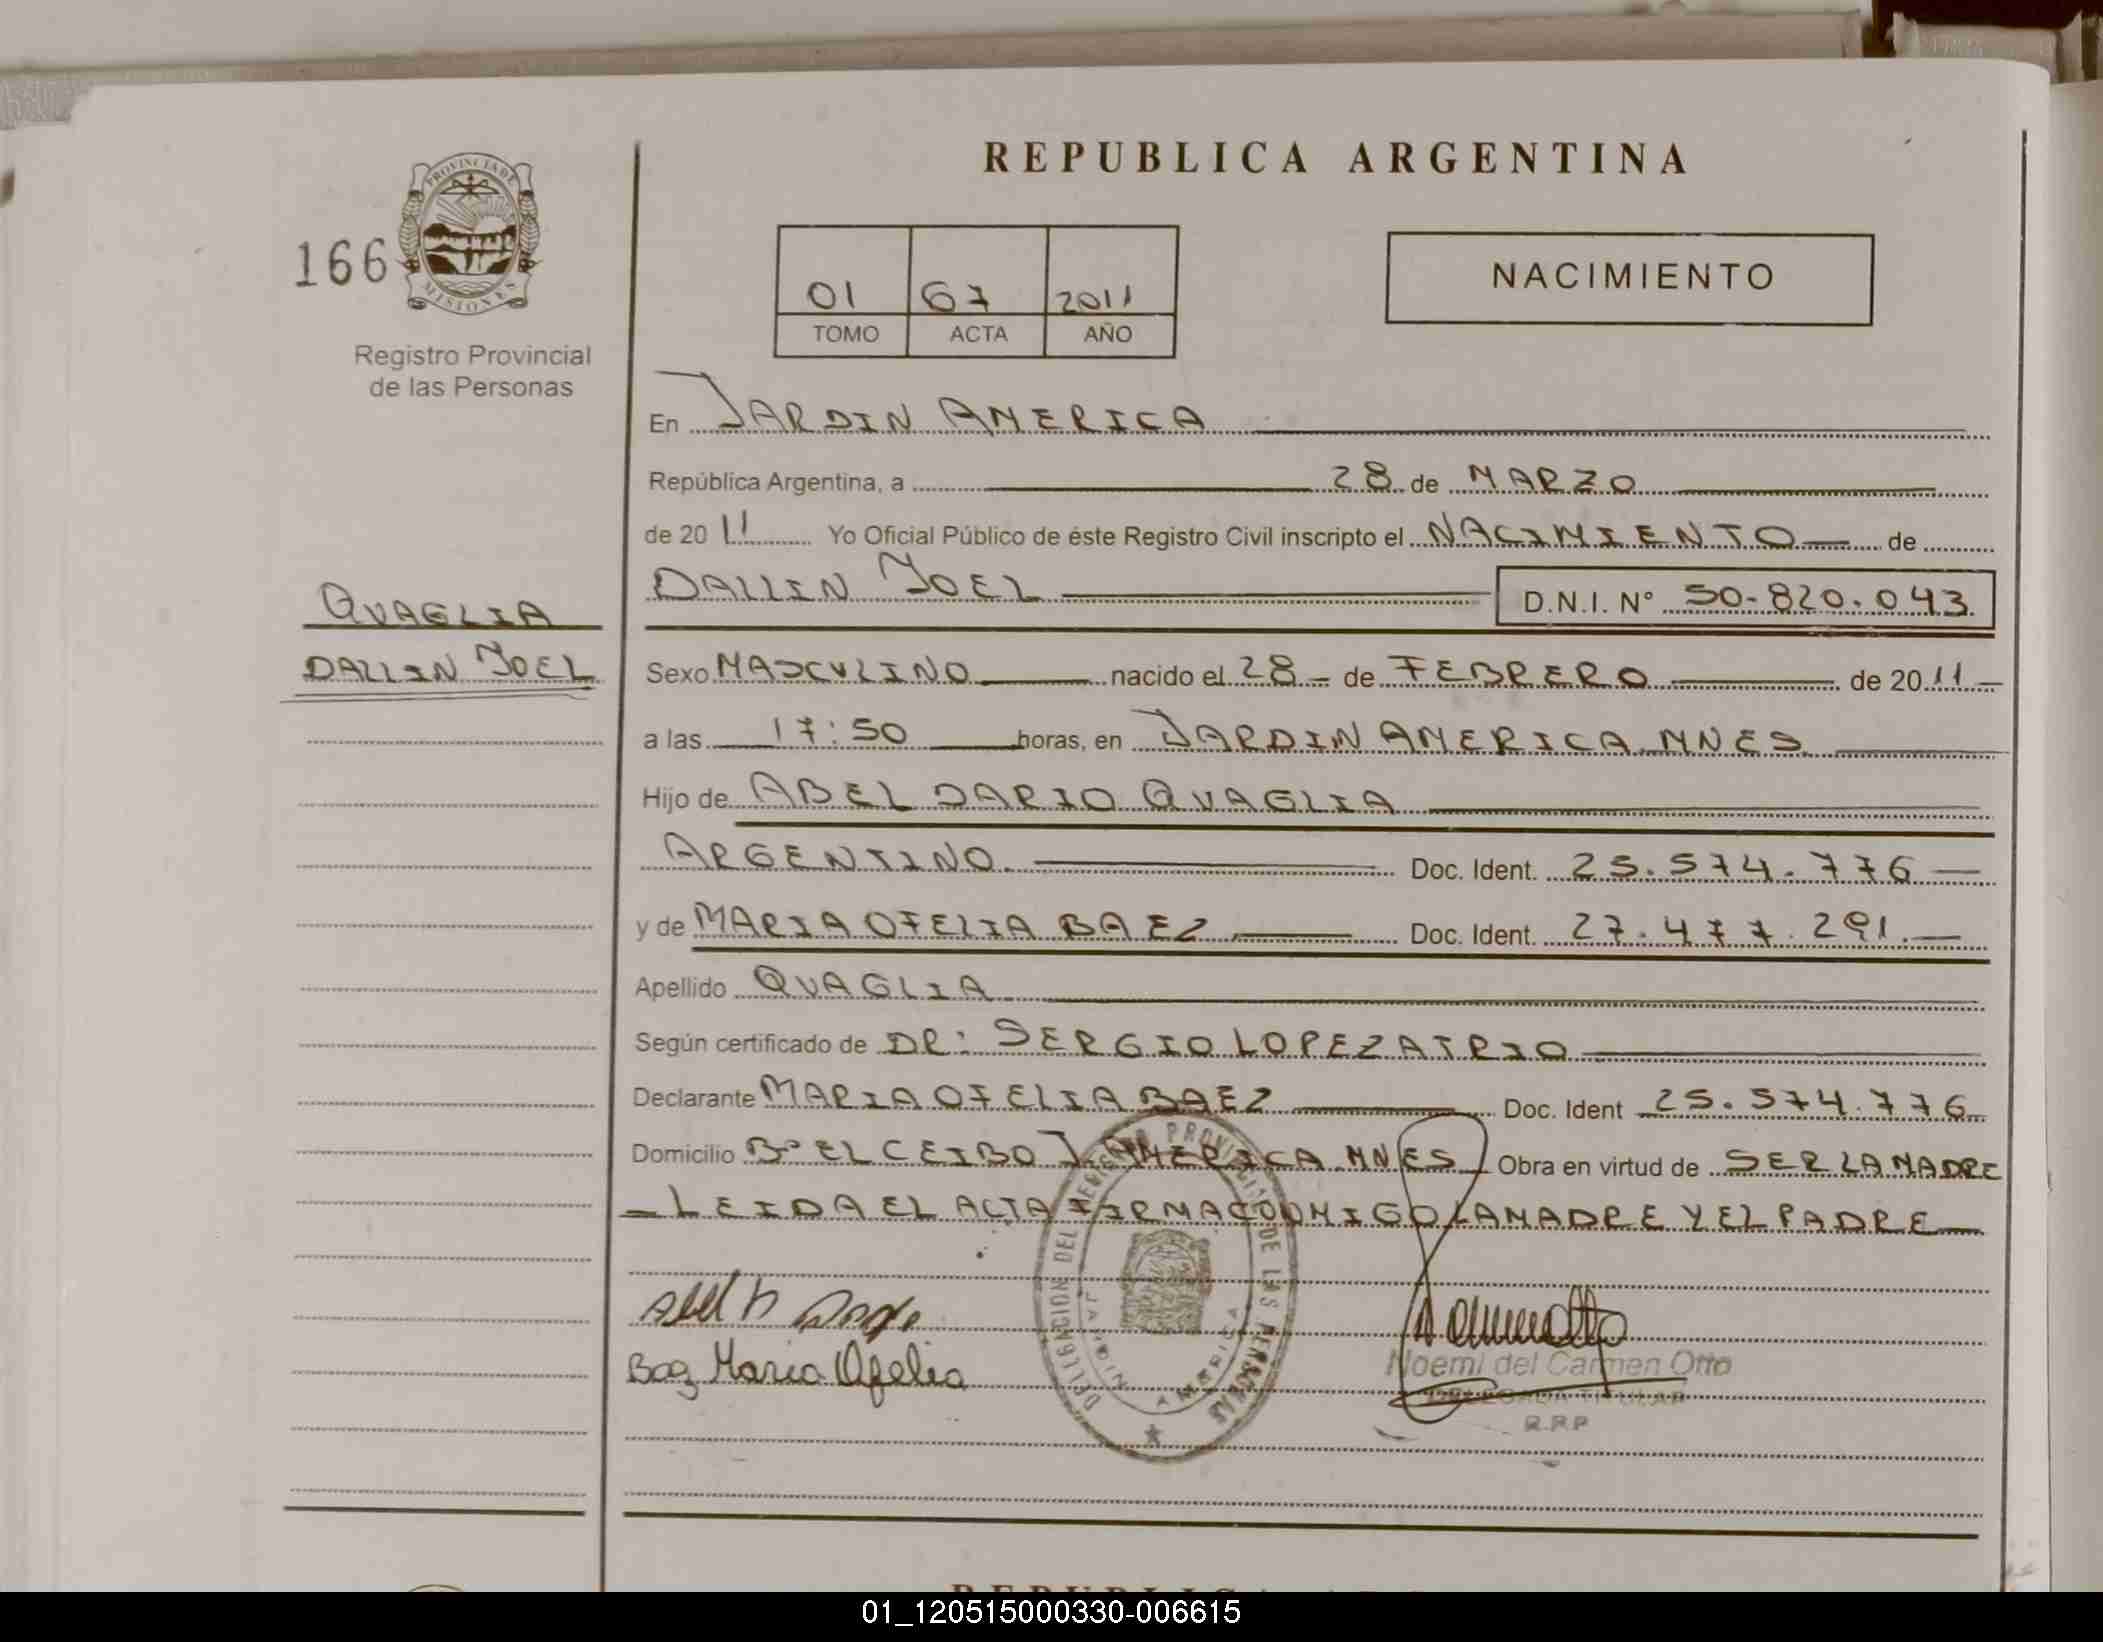 REPUBLICA ARGENTINA
PROVINCIA DE
MISIONES
166
Registro Provincial
de las Personas
01 67 2011
TOMO ACTA AÑO
NACIMIENTO
En JARDIN AMERICA
República Argentina, a 28 de MARZO
de 2011 Yo Oficial Público de éste Registro Civil inscripto el NACIMIENTO de
DALLIN JOEL D.N.I. N° 50-820.043
QUAGLIA
DALLIN JOEL
Sexo MASCULINO nacido el 28 de FEBRERO de 2011
a las 17:50 horas, en JARDIN AMERICA MNES
Hijo de ABEL DARIO QUAGLIA
ARGENTINO Doc. Ident. 25.574.776
y de MARIA OFELIA BAEZ Doc. Ident. 27.477.291
Apellido QUAGLIA
Según certificado de DR: SERGIO LOPEZ ATRIO
Declarante MARIA OFELIA BAEZ Doc. Ident 25.574.776
Domicilio B° EL CEIBO J. AMERICA MNES Obra en virtud de SER LA MADRE
LEIDA EL ACTA FIRMA CONMIGO LA MADRE Y EL PADRE
DELEGACION DEL REGISTRO PROVINCIAL DE LAS PERSONAS
JARDIN AMERICA
Baez Maria Ofelia
Noemi del Carmen Otto
DELEGADA TITULAR
R.P.P
01_120515000330-006615